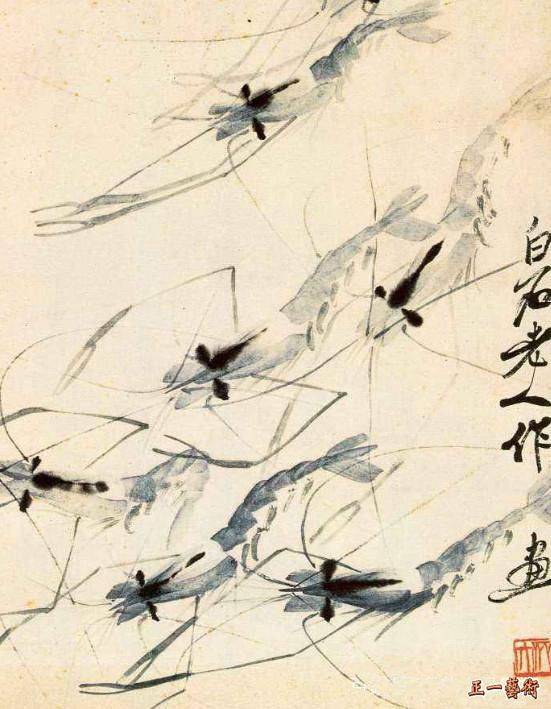 白石老人作畫
正一藝術